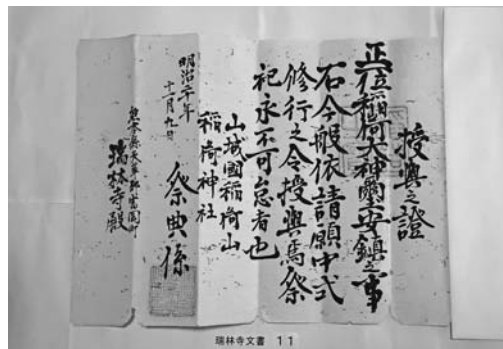 授與之證
正一位稲荷大神璽安鎮之事
右今般依請願中式
修行之令授與焉祭
祀永不可怠者也
山城國稲荷山
稲荷神社
祭典係
明治 年
十一月九日
熊本縣天草郡 町
瑞林寺殿
瑞林寺文書 11